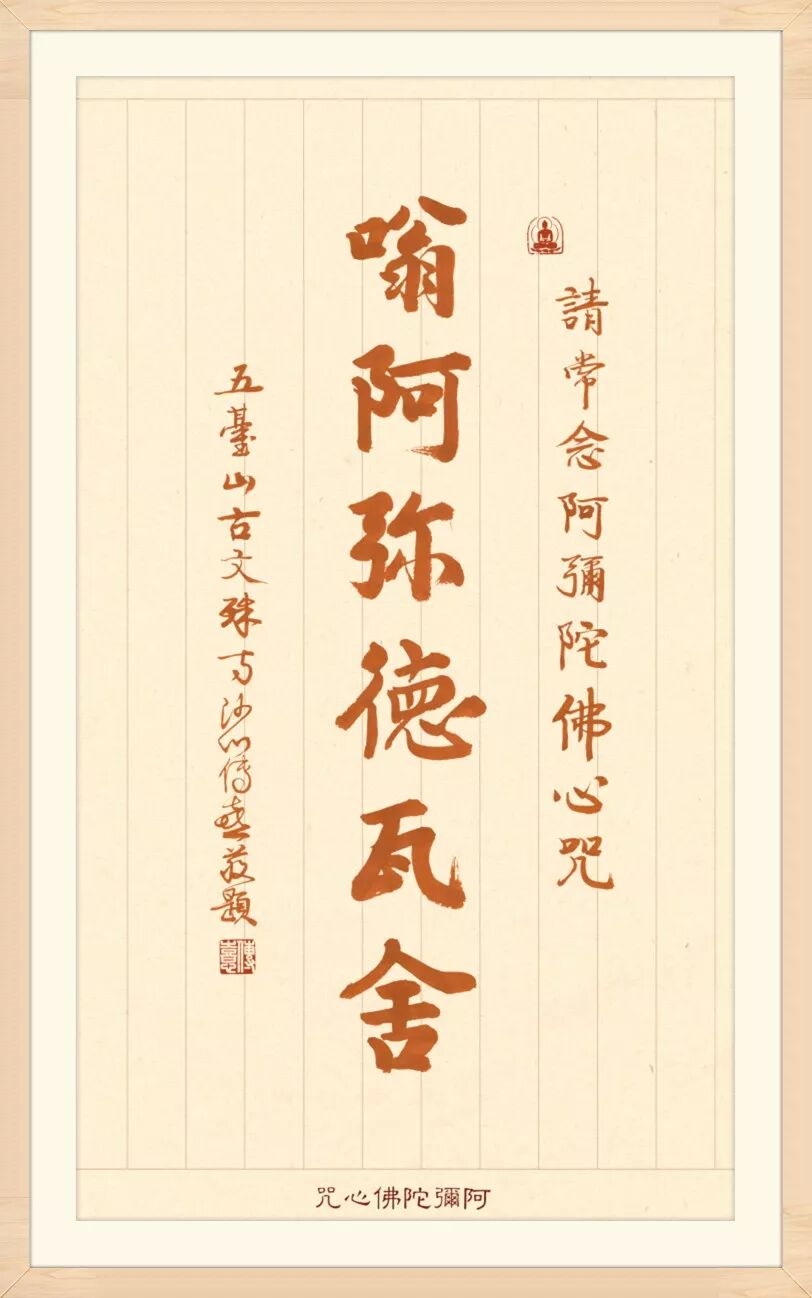 請常念阿彌陀佛心咒
嗡阿弥德瓦舍
五臺山古文殊寺沙門傳憙敬題
傳憙
阿彌陀佛心咒